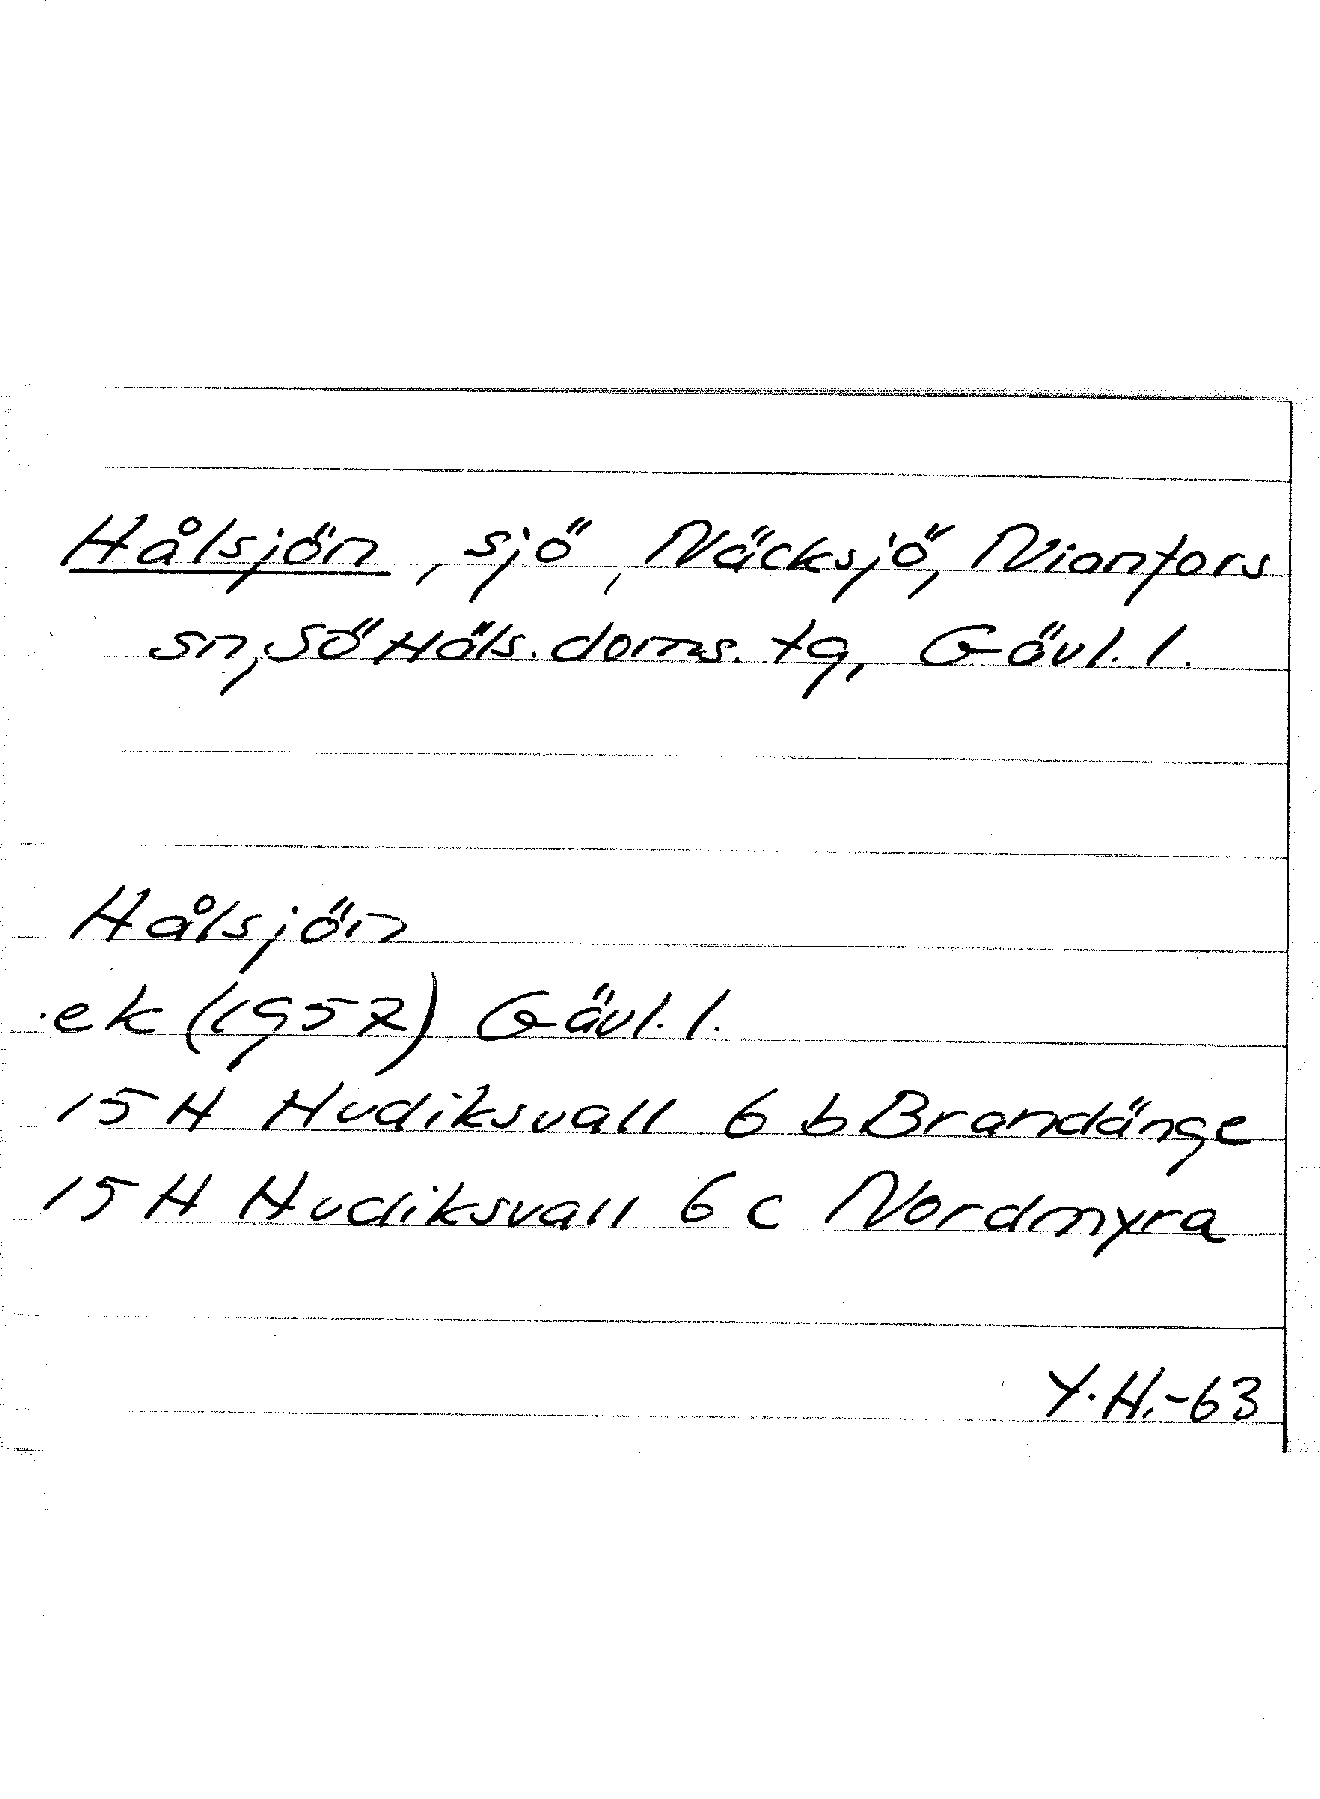 Hålsjön, sjö, Näcksjö, Nianfors
sn, Sö Häls. doms. tg, Gävl. l.
Hålsjön
ek (1957) Gävl. l.
15 H Hudiksvall 6 b Brandänge
15 H Hudiksvall 6 c Nordmyra
Y.H.-63